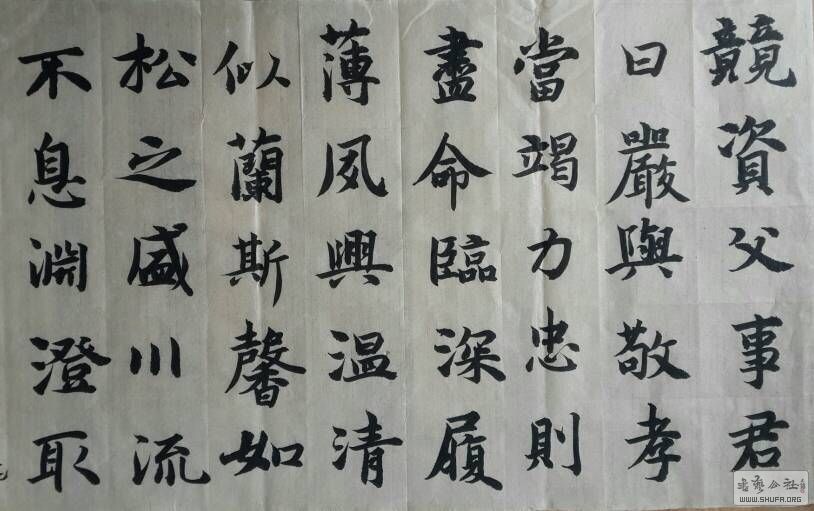 競資父事君
曰嚴與敬孝
當竭力忠則
盡命臨深履
薄夙興温清
似蘭斯馨如
松之盛川流
不息淵澄取
書藝公社
WWW.SHUFR.ORG